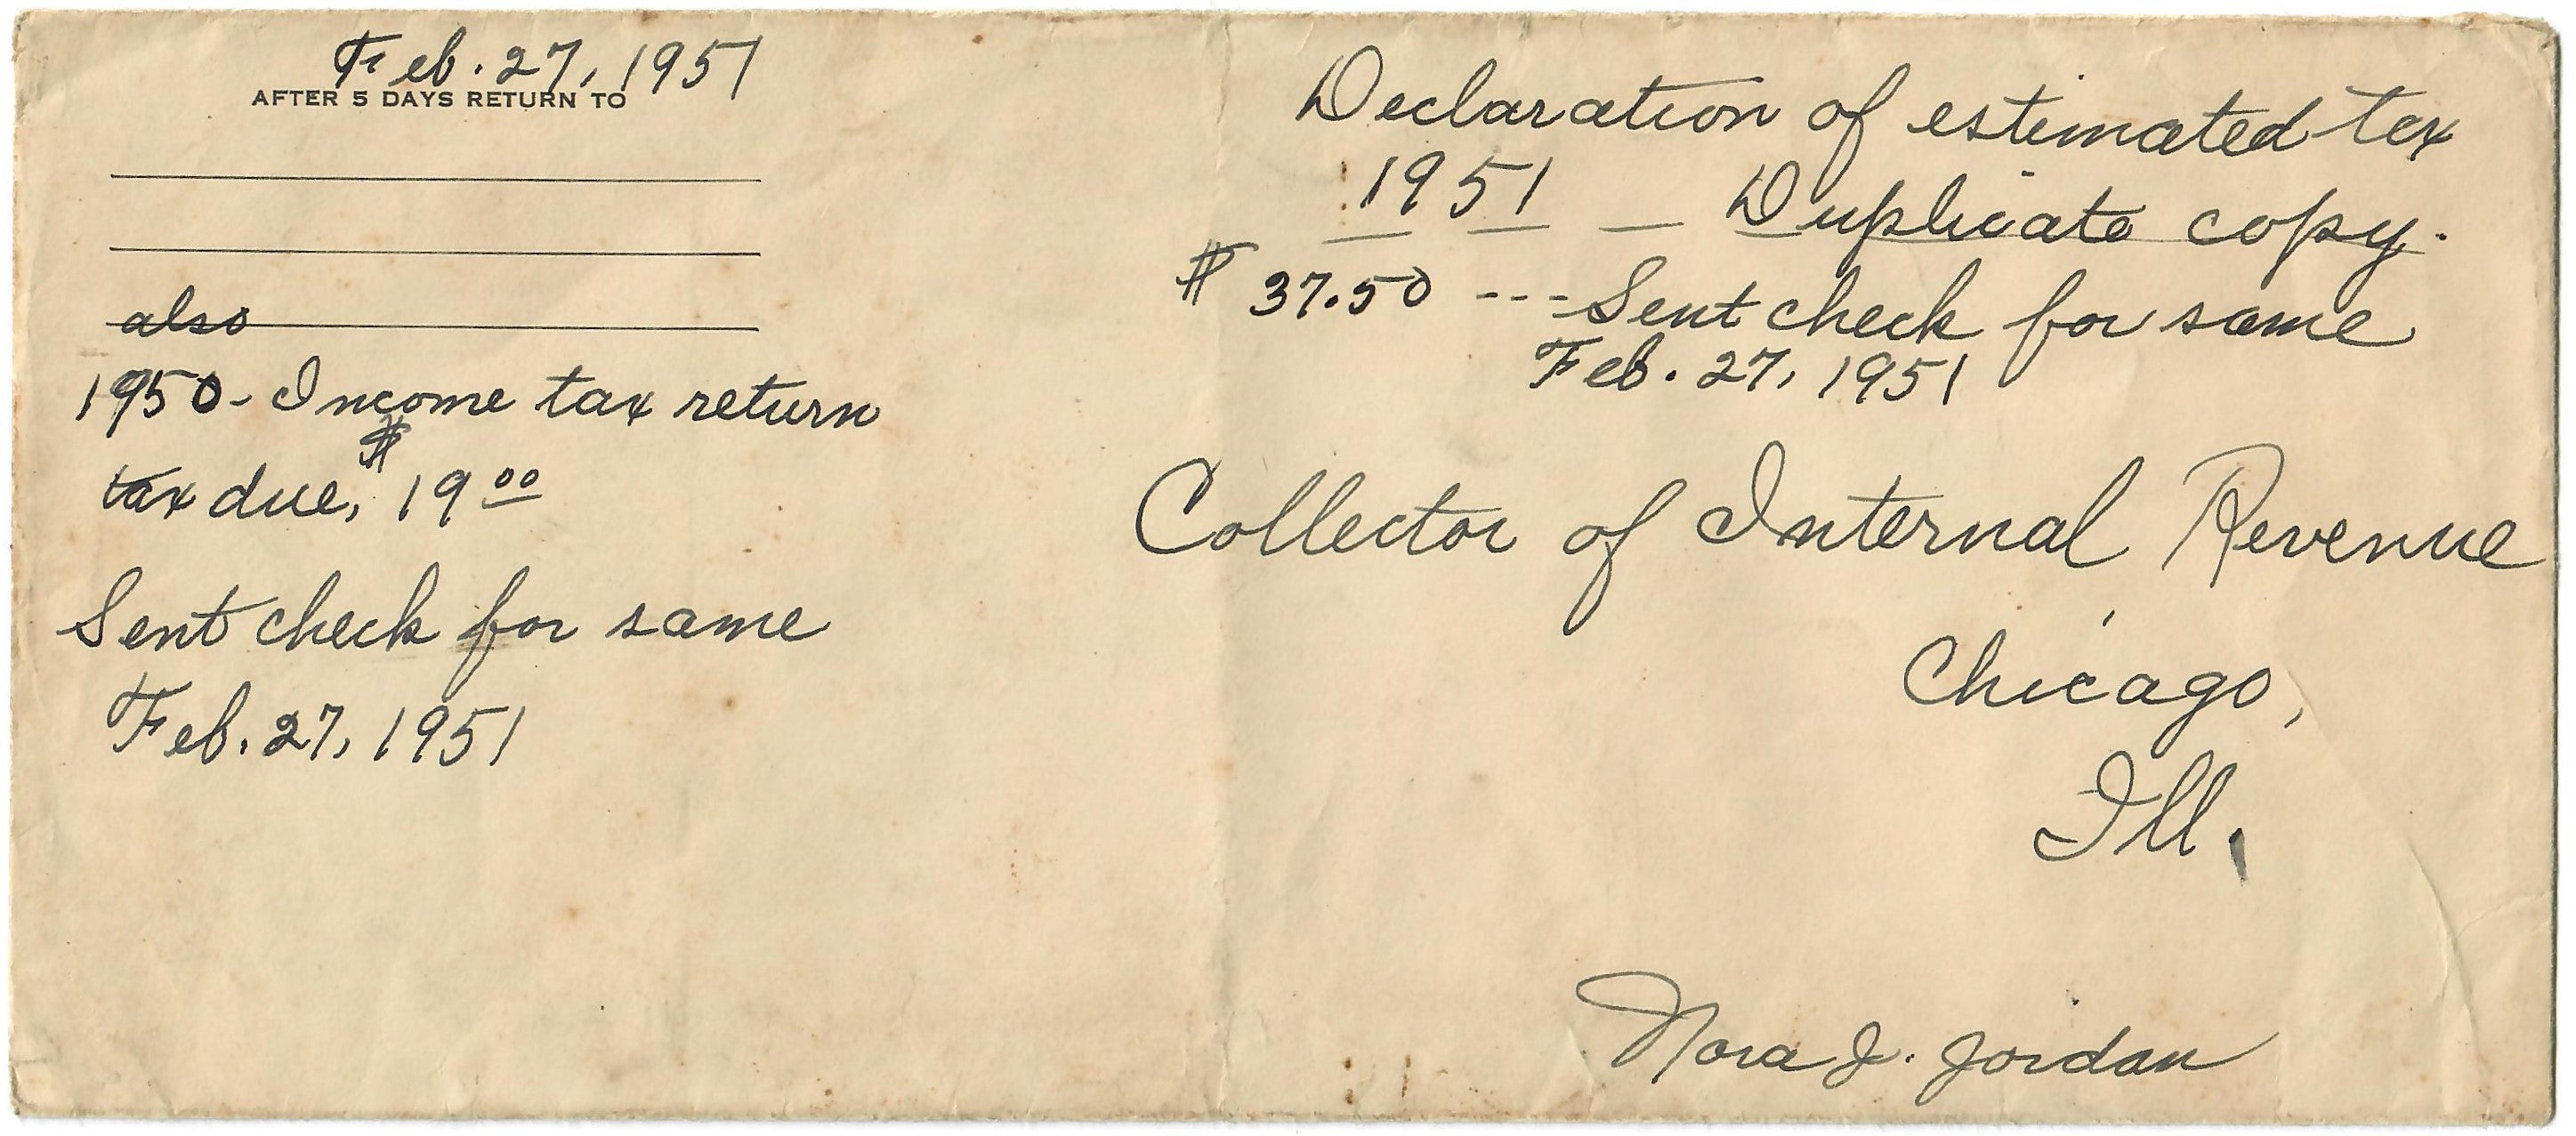 Feb. 27, 1951
AFTER 5 DAYS RETURN TO
also
1950 - Income tax return
tax due, $19 00
Sent check for same
Feb. 27, 1951
Declaration of estimated tax
1951 - Duplicate copy.
$ 37.50 --- Sent check for same
Feb. 27, 1951
Collector of Internal Revenue,
Chicago,
Ill.
Nora J. Jordan